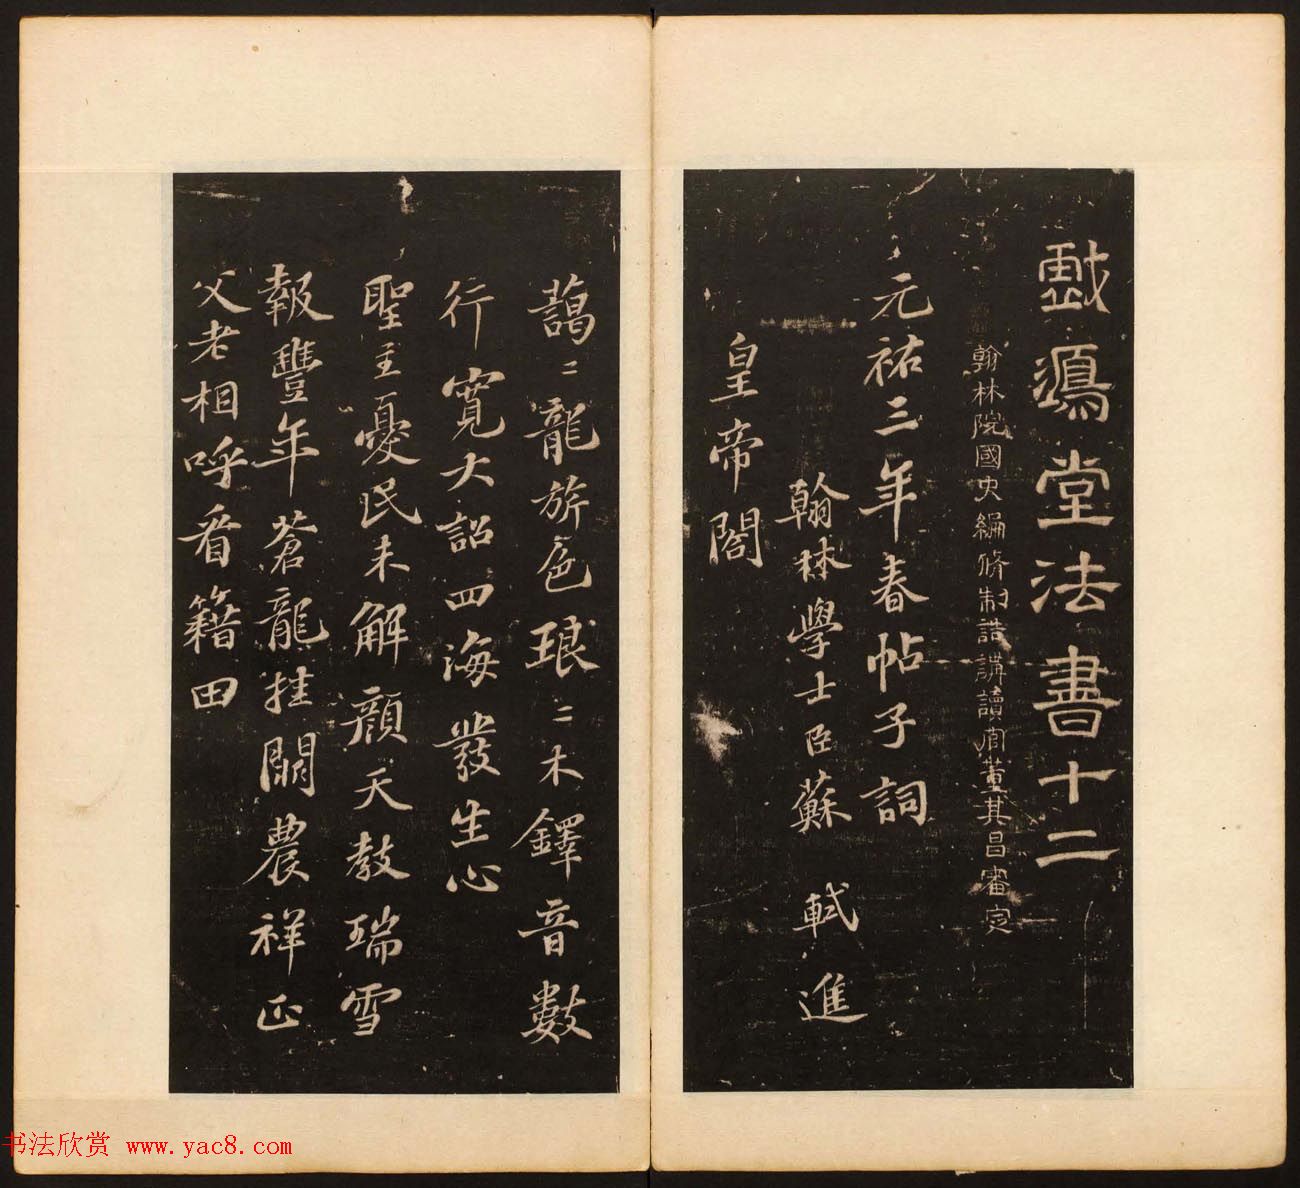 戲鴻堂法書十二
翰林院國史編脩制誥講讀官董其昌審定
元祐三年春帖子詞
翰林學士臣蘇 軾 進
皇帝閣
藹〻龍旂色琅〻木鐸音數
行寬大詔四海發生心
聖主憂民未解顏天教瑞雪
報豐年蒼龍挂闕農祥正
父老相呼看籍田
书法欣赏 www.yac8.com